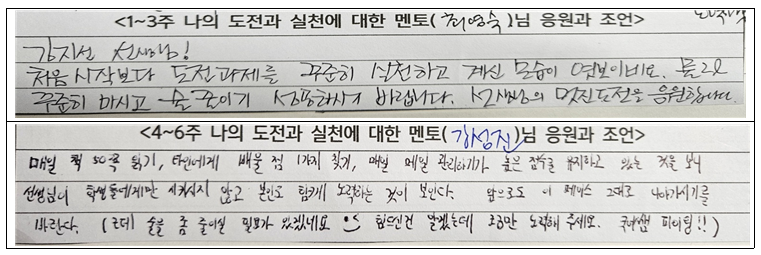 <1~3주 나의 도전과 실천에 대한 멘토(허영숙)님 응원과 조언>
김지선 선생님!
처음 시작보다 도전과제를 꾸준히 실천하고 계신 모습이 엿보이네요. 물 2L
꾸준히 마시고 술 줄이기 성공하시기 바랍니다. 선생님의 멋진 도전을 응원합니다.
<4~6주 나의 도전과 실천에 대한 멘토(강성진)님 응원과 조언>
매일 책 50쪽 읽기, 타인에게 배울 점 1가지 찾기, 매일 메일 관리하기가 높은 점수를 유지하고 있는 것을 보니
선생님이 학생들에게만 시키시지 않고 본인도 함께 노력하는 것이 보인다. 앞으로도 이 페이스 그대로 나아가시기를
바란다. (근데 술을 좀 줄이실 필요가 있겠네요 힘드신건 알겠는데 조금만 노력해 주세요. 국어쌤 파이팅!!)